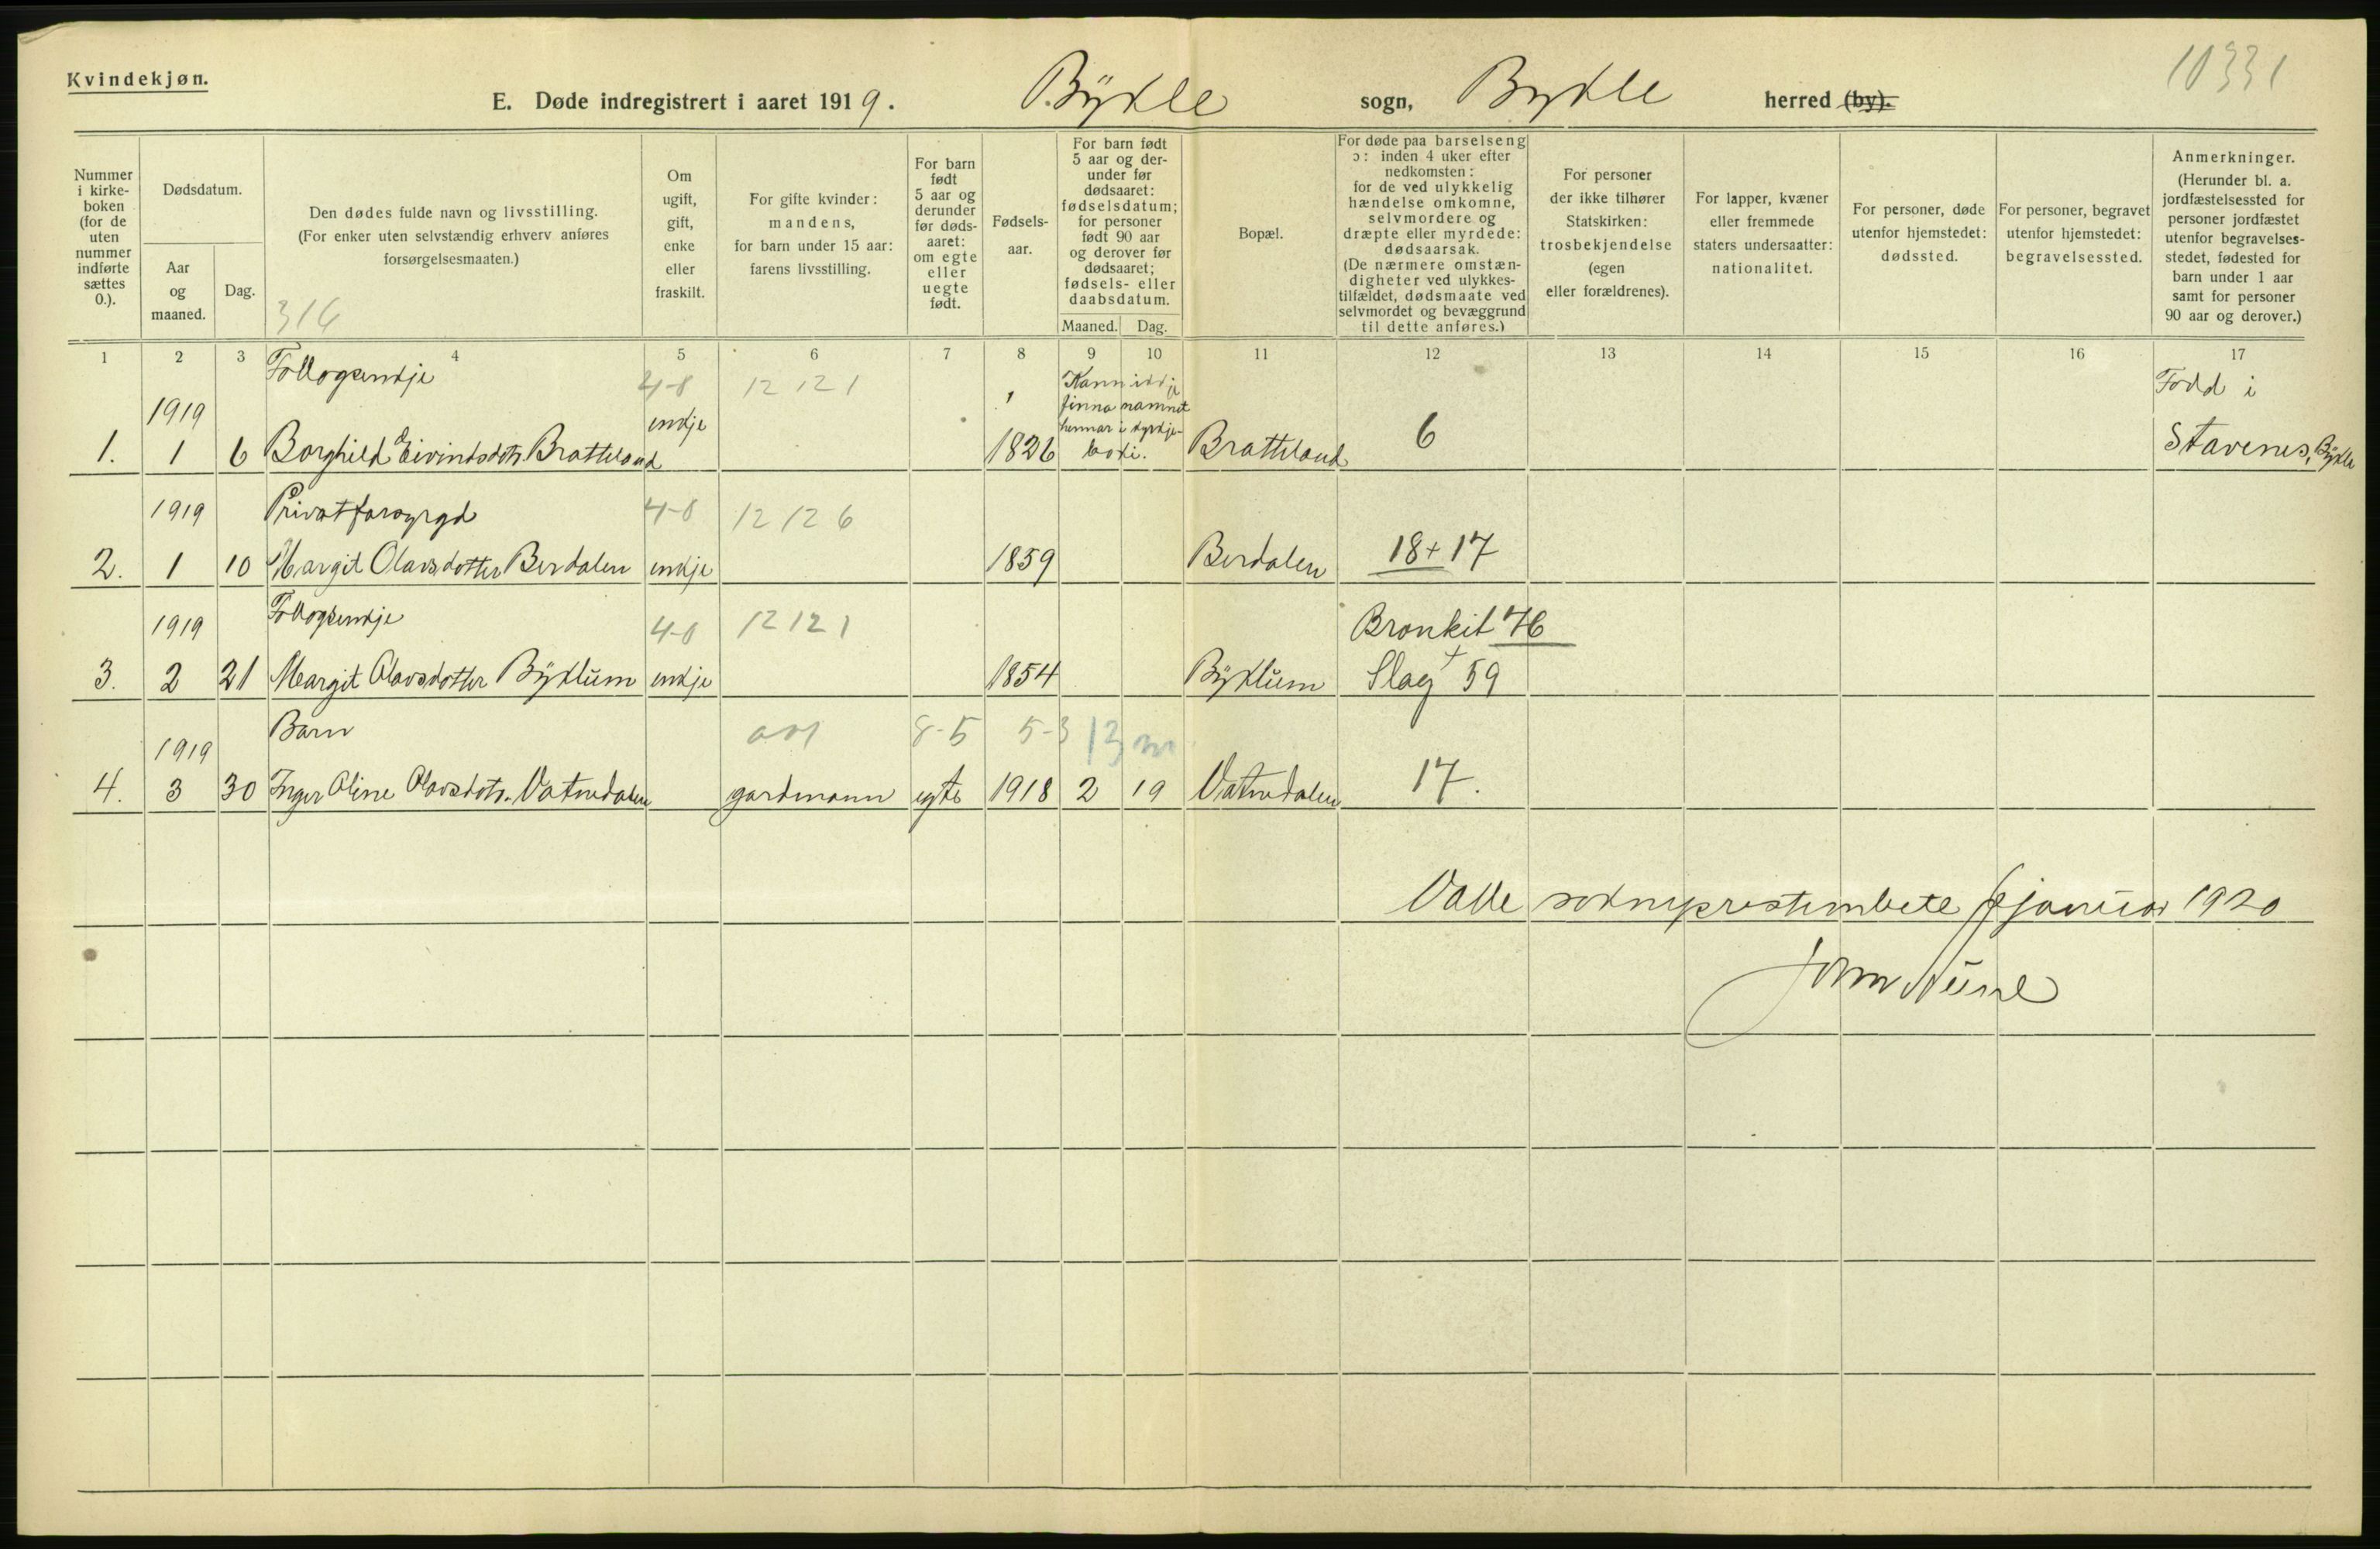 Kvindekjøn.
10331
E. Døde indregistrert i aaret 1919. Bykle sogn, Bykle herred (by).
Nummer i kirkeboken (for de uten nummer indførte sættes 0.).
Dødsdatum.
Aar og maaned.
Dag.
Den dødes fulde navn og livsstilling.
(For enker uten selvstændig erhverv anføres forsørgelsesmaaten.)
316
Om ugift, gift, enke eller fraskilt.
For gifte kvinder: mandens, for barn under 15 aar: farens livsstilling.
For barn født 5 aar og derunder før dødsaaret: om egte eller uegte født.
Fødselsaar.
For barn født 5 aar og derunder før dødsaaret: fødselsdatum; for personer født 90 aar og derover før dødsaaret; fødsels- eller daabsdatum.
Maaned. Dag.
Bopæl.
For døde paa barselseng ɔ: inden 4 uker efter nedkomsten: for de ved ulykkelig hændelse omkomne, selvmordere og dræpte eller myrdede: dødsaarsak.
(De nærmere omstændigheter ved ulykkestilfældet, dødsmaate ved selvmordet og bevæggrund til dette anføres.)
For personer der ikke tilhører Statskirken: trosbekjendelse (egen eller forældrenes).
For lapper, kvæner eller fremmede staters undersaatter: nationalitet.
For personer, døde utenfor hjemstedet: dødssted.
For personer, begravet utenfor hjemstedet: begravelsessted.
Anmerkninger.
(Herunder bl. a. jordfæstelsessted for personer jordfæstet utenfor begravelsesstedet, fødested for barn under 1 aar samt for personer 90 aar og derover.)
1 2 3 4 5 6 7 8 9 10 11 12 13 14 15 16 17
Follogsenkje 4-8 12 12 1 Kann ikkje Fødd i
1919 enkje finna namnet
hennar i kyrkje-
1. 1 6 Borghild Eivindsdotr. Bratteland 1826 boki. Bratteland 6 Stavenes, Bykle
1919 Privatforsyrgd 4-8 12 12 6
2. 1 10 Margit Olavsdotter Berdalen enkje 1859 Berdalen 18+17
1919 Follogsenkje 4-8 12 12 1 Bronkit 46
3. 2 21 Margit Olavsdotter Byklum enkje 1854 Byklum Slag + 59
1919 Barn 8-5 5-3 13 m
4. 3 30 Inger Oline Olavsdotr. Vatnedalen gardmann egte 1918 2 19 Vatnedalen 17.
Valle sokneprestembete januar 1920